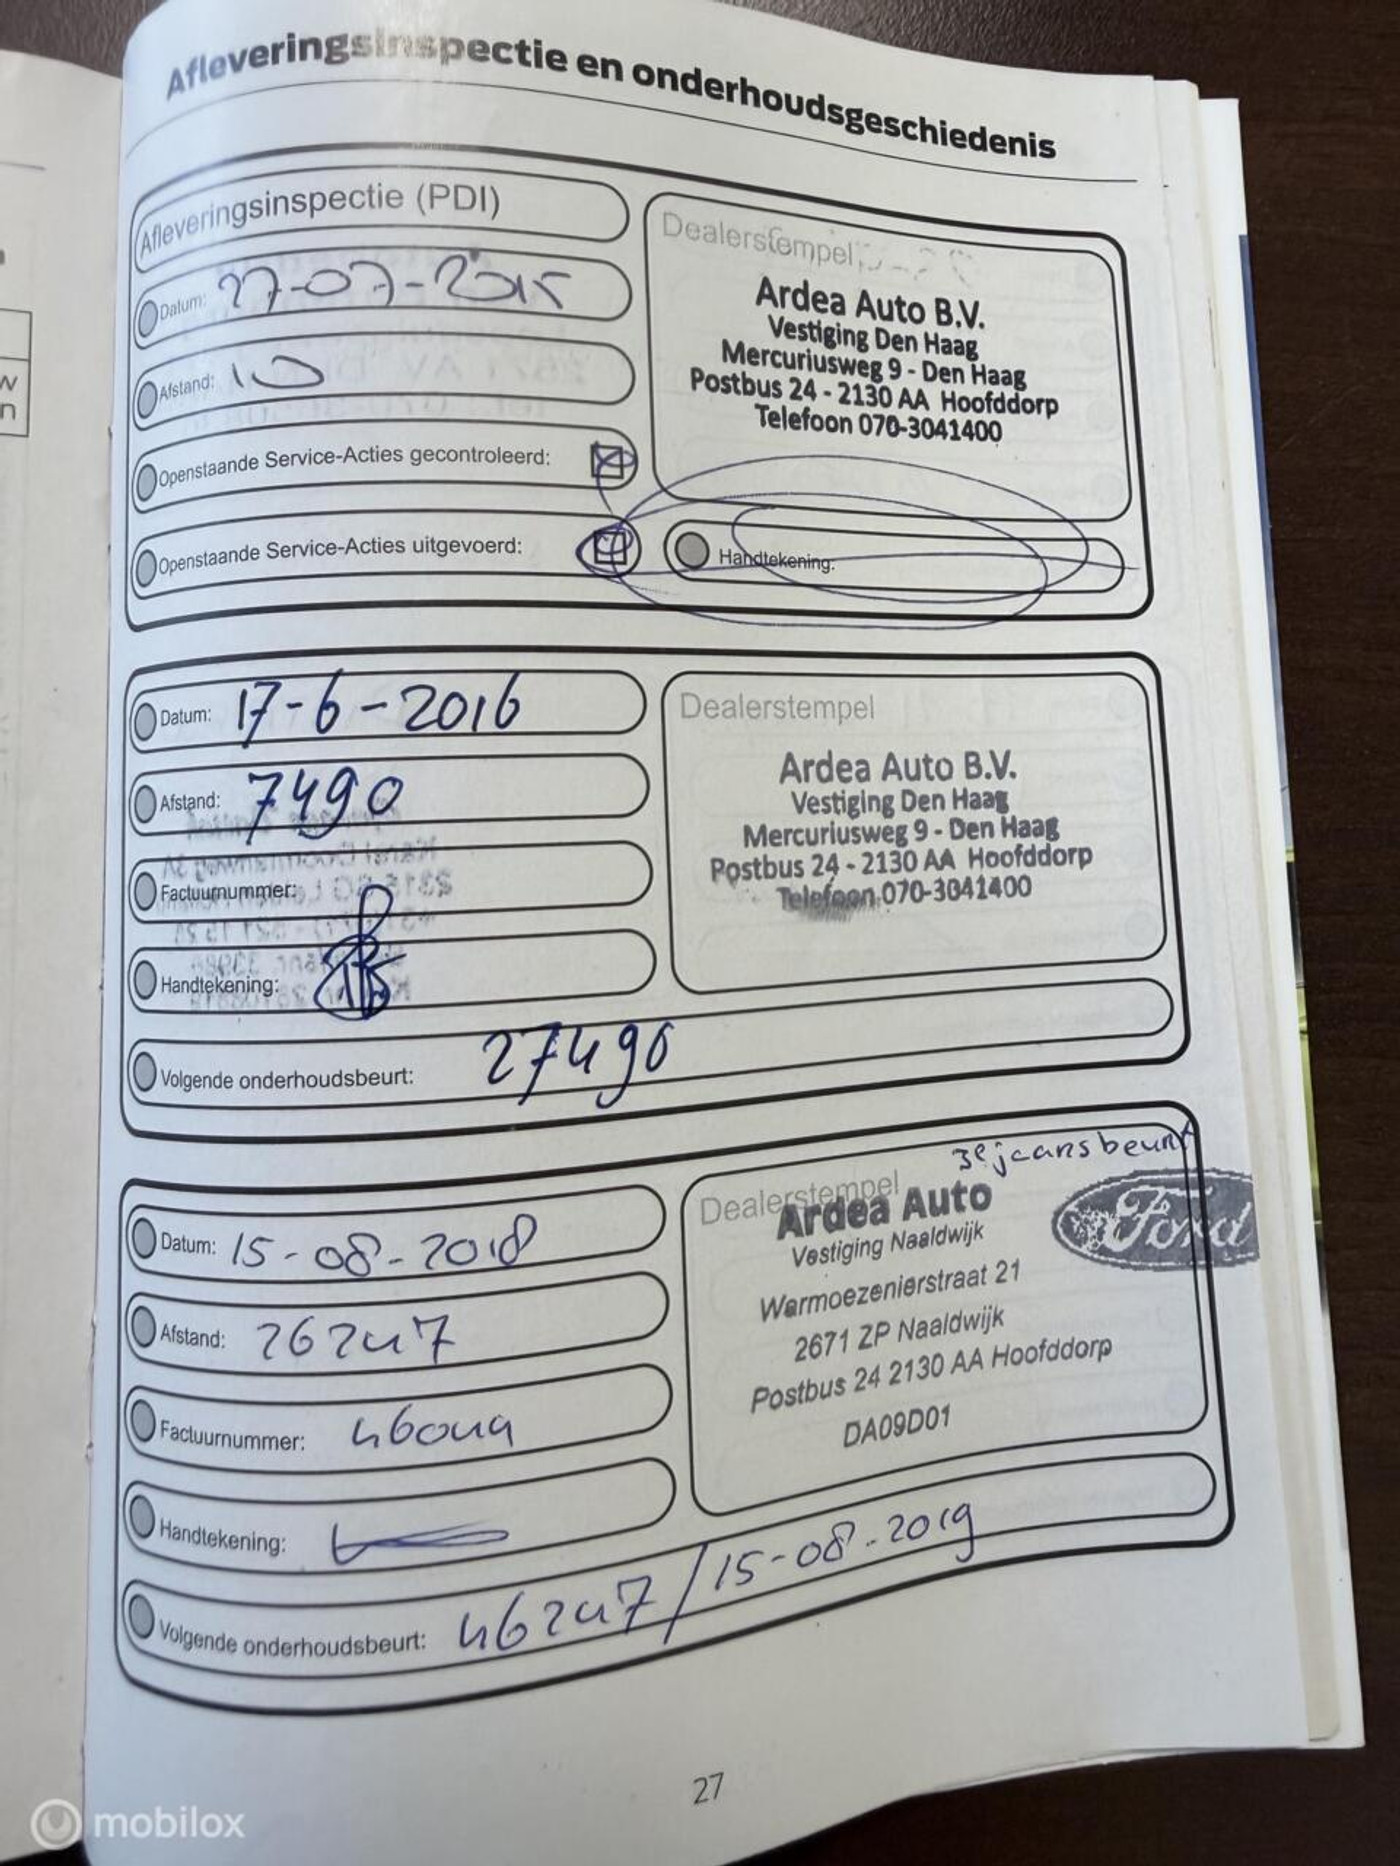 Afleveringsinspectie en onderhoudsgeschiedenis
Afleveringsinspectie (PDI)
Datum: 27-07-2015
Afstand: 10
Openstaande Service-Acties gecontroleerd:
Openstaande Service-Acties uitgevoerd:
Dealerstempel
Ardea Auto B.V.
Vestiging Den Haag
Mercuriusweg 9 - Den Haag
Postbus 24 - 2130 AA Hoofddorp
Telefoon 070-3041400
Handtekening:
Datum: 17-6-2016
Afstand: 7490
Factuurnummer:
Handtekening:
Volgende onderhoudsbeurt: 27490
Dealerstempel
Ardea Auto B.V.
Vestiging Den Haag
Mercuriusweg 9 - Den Haag
Postbus 24 - 2130 AA Hoofddorp
Telefoon 070-3041400
Datum: 15-08-2018
Afstand: 26247
Factuurnummer: 46044
Handtekening:
Volgende onderhoudsbeurt: 46247 / 15-08-2019
3e jaarsbeurt
Dealerstempel
Ardea Auto
Ford
Vestiging Naaldwijk
Warmoezenierstraat 21
2671 ZP Naaldwijk
Postbus 24 2130 AA Hoofddorp
DA09D01
27
mobilox